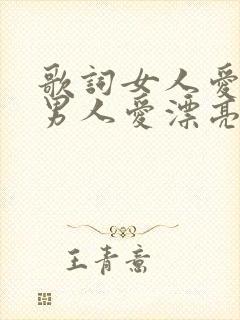 歌詞女人愛
男人愛漂亮
王青意